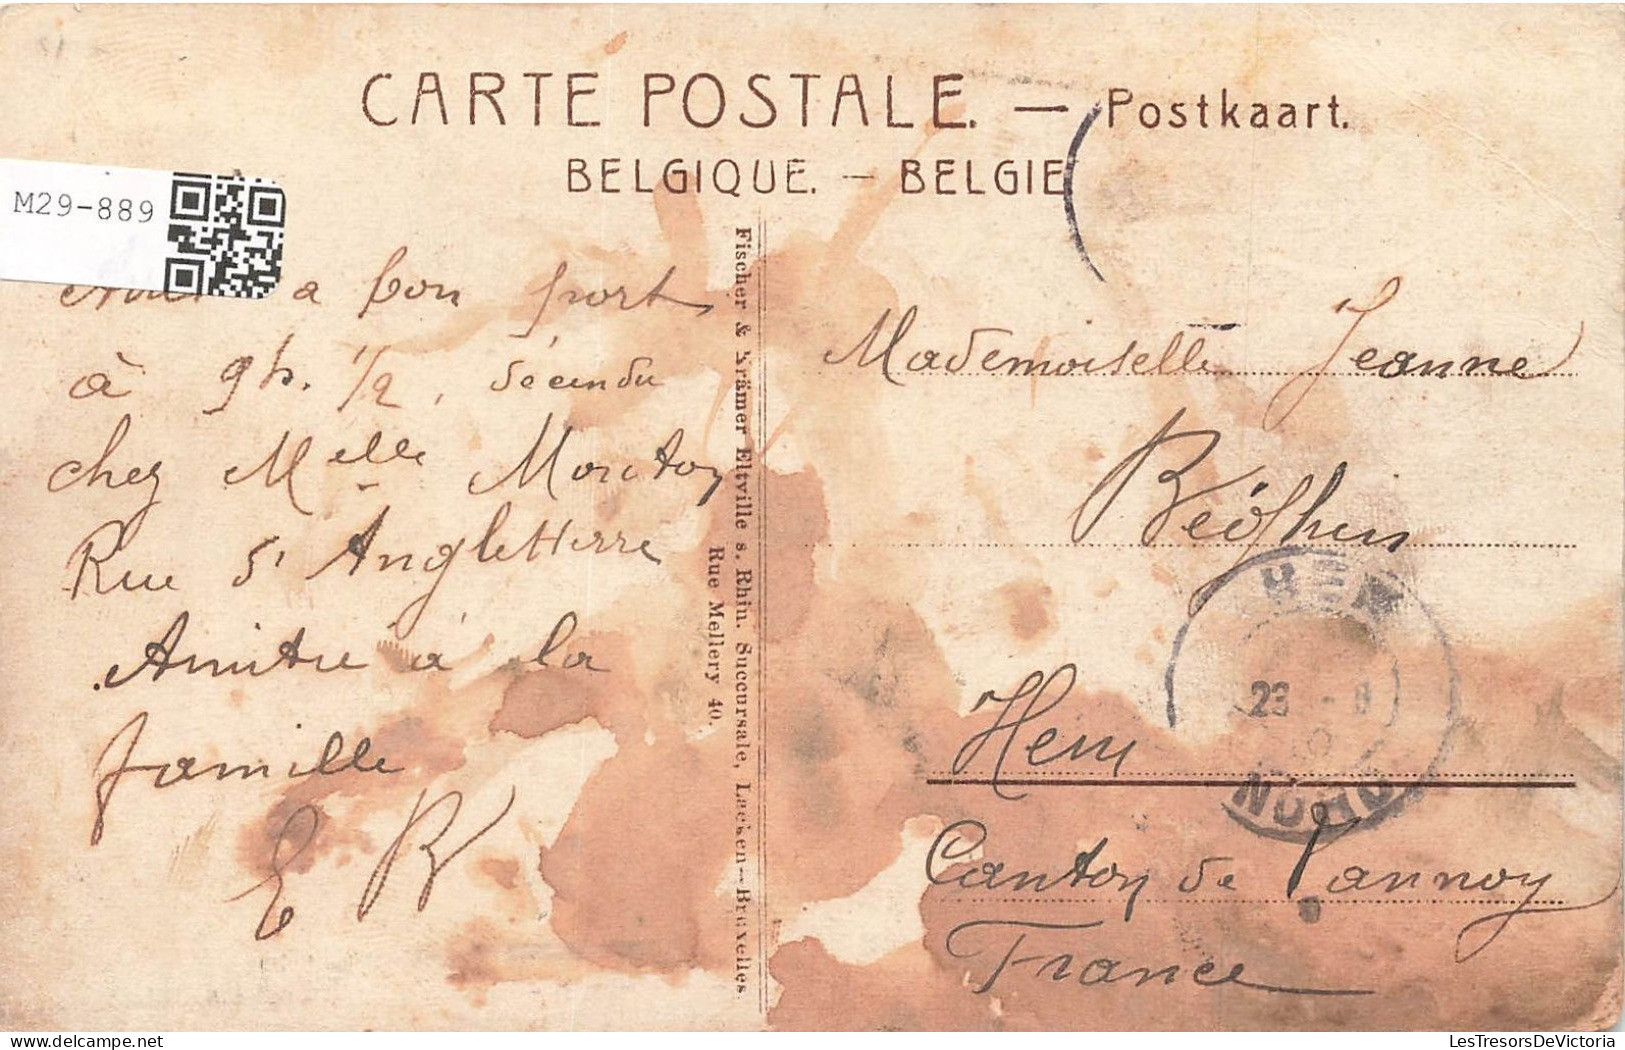 CARTE POSTALE. — Postkaart.
BELGIQUE. — BELGIE
M29-889
a bon port
à 9h. 1/2, décendu
chez Melle
Rue d'Angletterre
Amitié à la
famille
E B
Fischer & Krämer Eltville s. Rhin. Succursale, Laeken—Bruxelles.
Rue Mellery 40.
Mademoiselle Jeanne
Béghin
Hem
Canton de Lannoy
France
HEM
23 - 8
NORD
LesTresorsDeVictoria